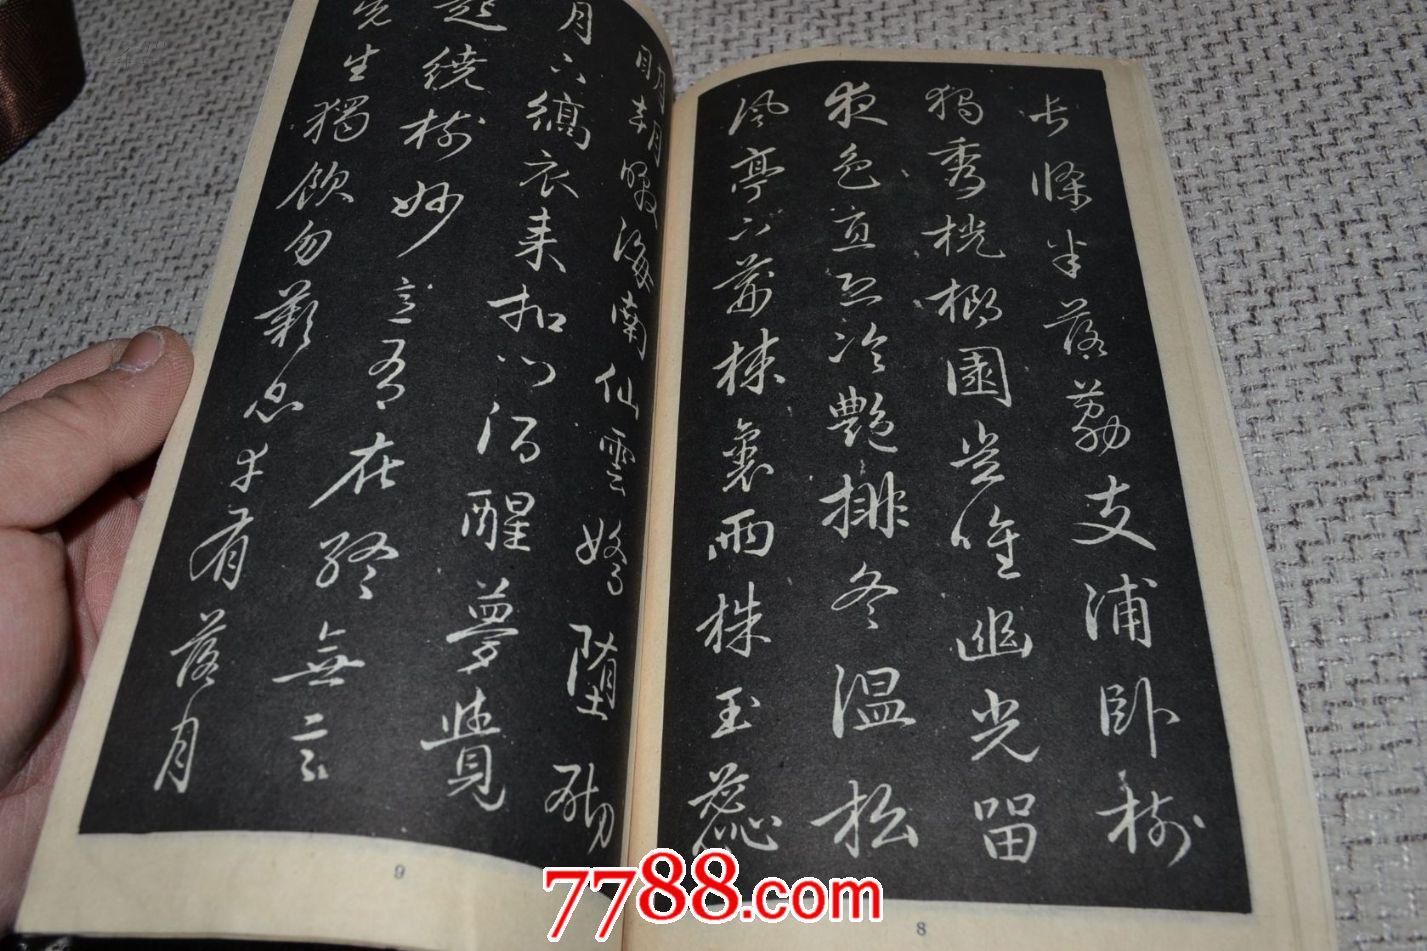 長條半落荔支浦臥樹
獨秀桄榔園豈唯幽光留
夜色直恐冷艷排冬温松
風亭下荊棘裏兩株玉蕊
8
明朝暾海南仙雲嬌堕砌
月下縞衣來扣門酒醒夢覺
起繞樹妙意有在終無言
先生獨飲勿歎息幸有落月
9
7788.com